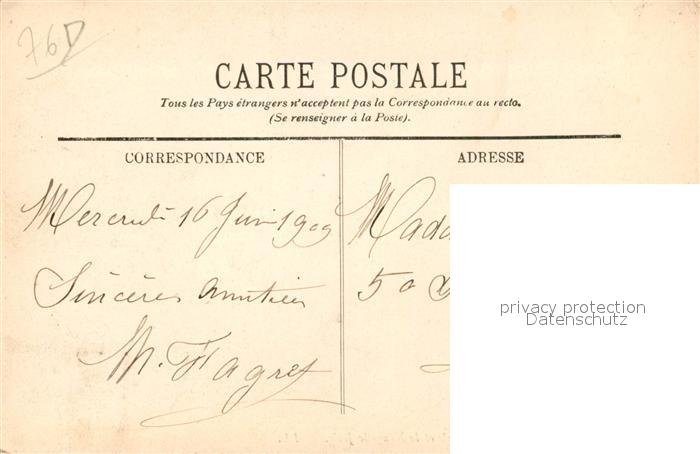 76D
CARTE POSTALE
Tous les Pays étrangers n'acceptent pas la Correspondance au recto.
(Se renseigner à la Poste).
CORRESPONDANCE
ADRESSE
Mercredi 16 Juin 1909
Sincères amitiés
M. Fagret
Mada
50
privacy protection
Datenschutz